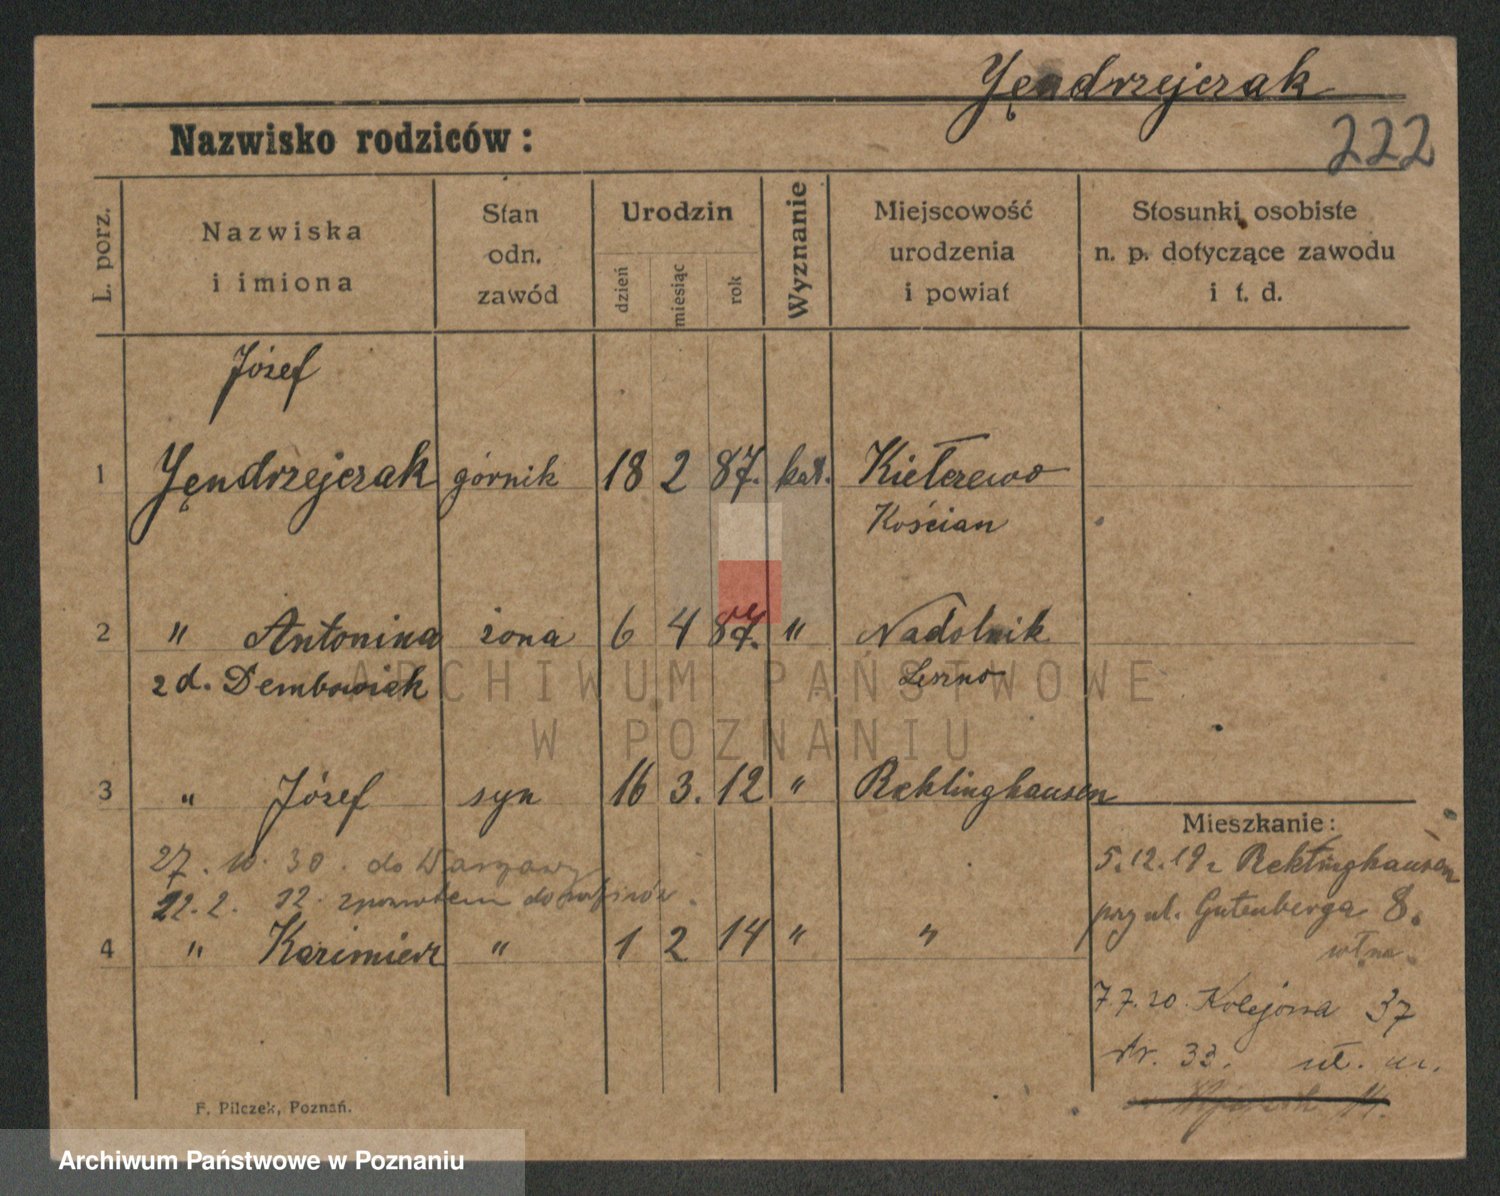 Jęndrzejczak
222
Nazwisko rodziców:
L. porz.
Nazwiska
i imiona
Stan
odn.
zawód
Urodzin
dzień
miesiąc
rok
Wyznanie
Miejscowość
urodzenia
i powiat
Stosunki osobiste
n. p. dotyczące zawodu
i t. d.
Józef
1 Jęndrzejczak górnik 18 2 87. kat. Kiełczewo
Kościan
2 " Antonina żona 6 4 87. " Nadolnik
z d. Dembowiak Leszno
3 " Józef syn 16 3. 12 " Reklinghausen
27. 10. 30. do Warszawy
22. 2. 32. zpowrotem do
4 " Kazimierz " 1 2 14 " "
Mieszkanie:
5.12.19 z Reklinghausen
przy ul. Gutenberga 8.
7.7.20. Kolejowa 37
33.
F. Pilczek, Poznań.
ARCHIWUM PAŃSTWOWE
W POZNANIU
Archiwum Państwowe w Poznaniu